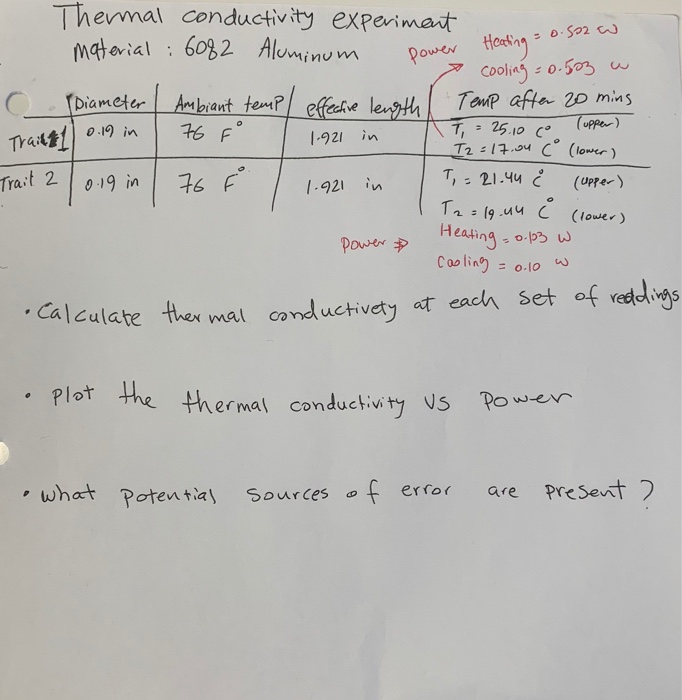 Thermal conductivity experiment
Material : 6082 Aluminum
Power Heating = 0.502 W
Cooling = 0.503 W
Diameter Ambiant temp effective length Temp after 20 mins
Trait 1 0.19 in 76 F° 1.921 in T1 = 25.10 C° (upper)
T2 = 17.04 C° (lower)
Trait 2 0.19 in 76 F° 1.921 in T1 = 21.44 C° (upper)
T2 = 19.44 C° (lower)
Power ⇒ Heating = 0.103 W
Cooling = 0.10 W
• Calculate thermal conductivety at each set of reddings
• Plot the thermal conductivity vs Power
• What Potential sources of error are present ?